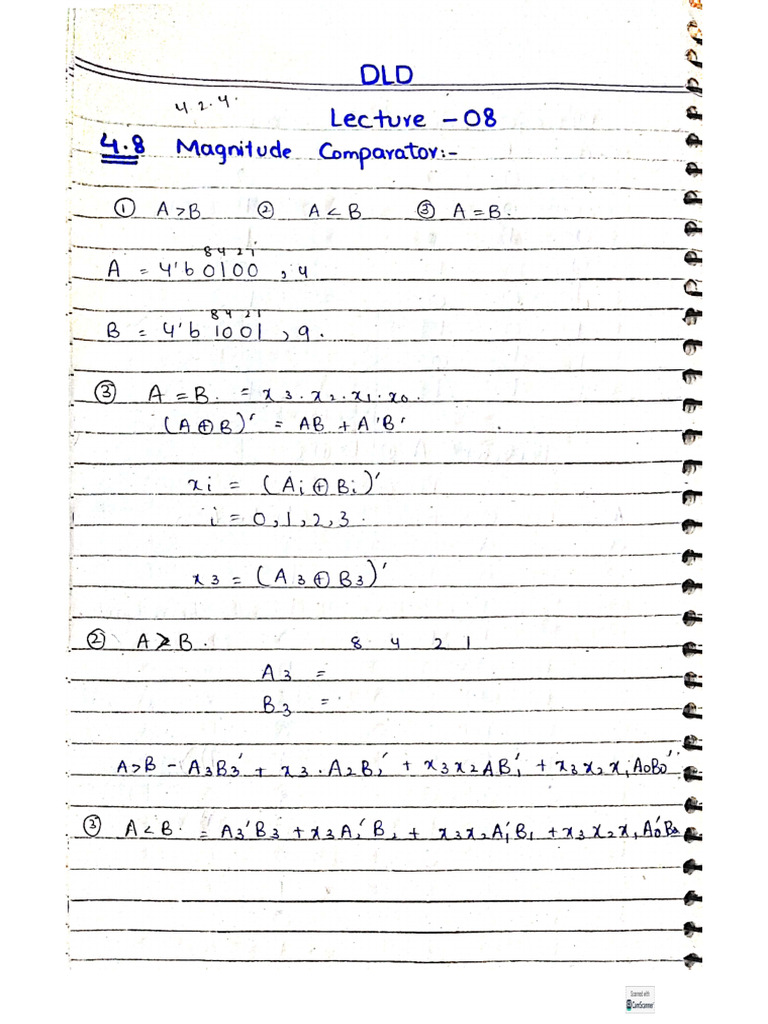 DLD
4.2.4.
Lecture - 08
4.8 Magnitude Comparator:-
① A>B ② A<B ③ A=B.
8 4 2 1
A = 4'b 0100 , 4
8 4 2 1
B = 4'b 1001 , 9.
③ A = B. = x3.x2.x1.x0.
(A⊕B)' = AB + A'B'
xi = (Ai⊕Bi)'
i = 0,1,2,3.
x3 = (A3⊕B3)'
② A>B. 8 4 2 1
A3 =
B3 =
A>B - A3B3' + x3.A2B2' + x3x2AB1' + x3x2x1A0B0'
③ A<B. = A3'B3 + x3A2'B2 + x3x2A1'B1 + x3x2x1A0'B0
Scanned with
CamScanner